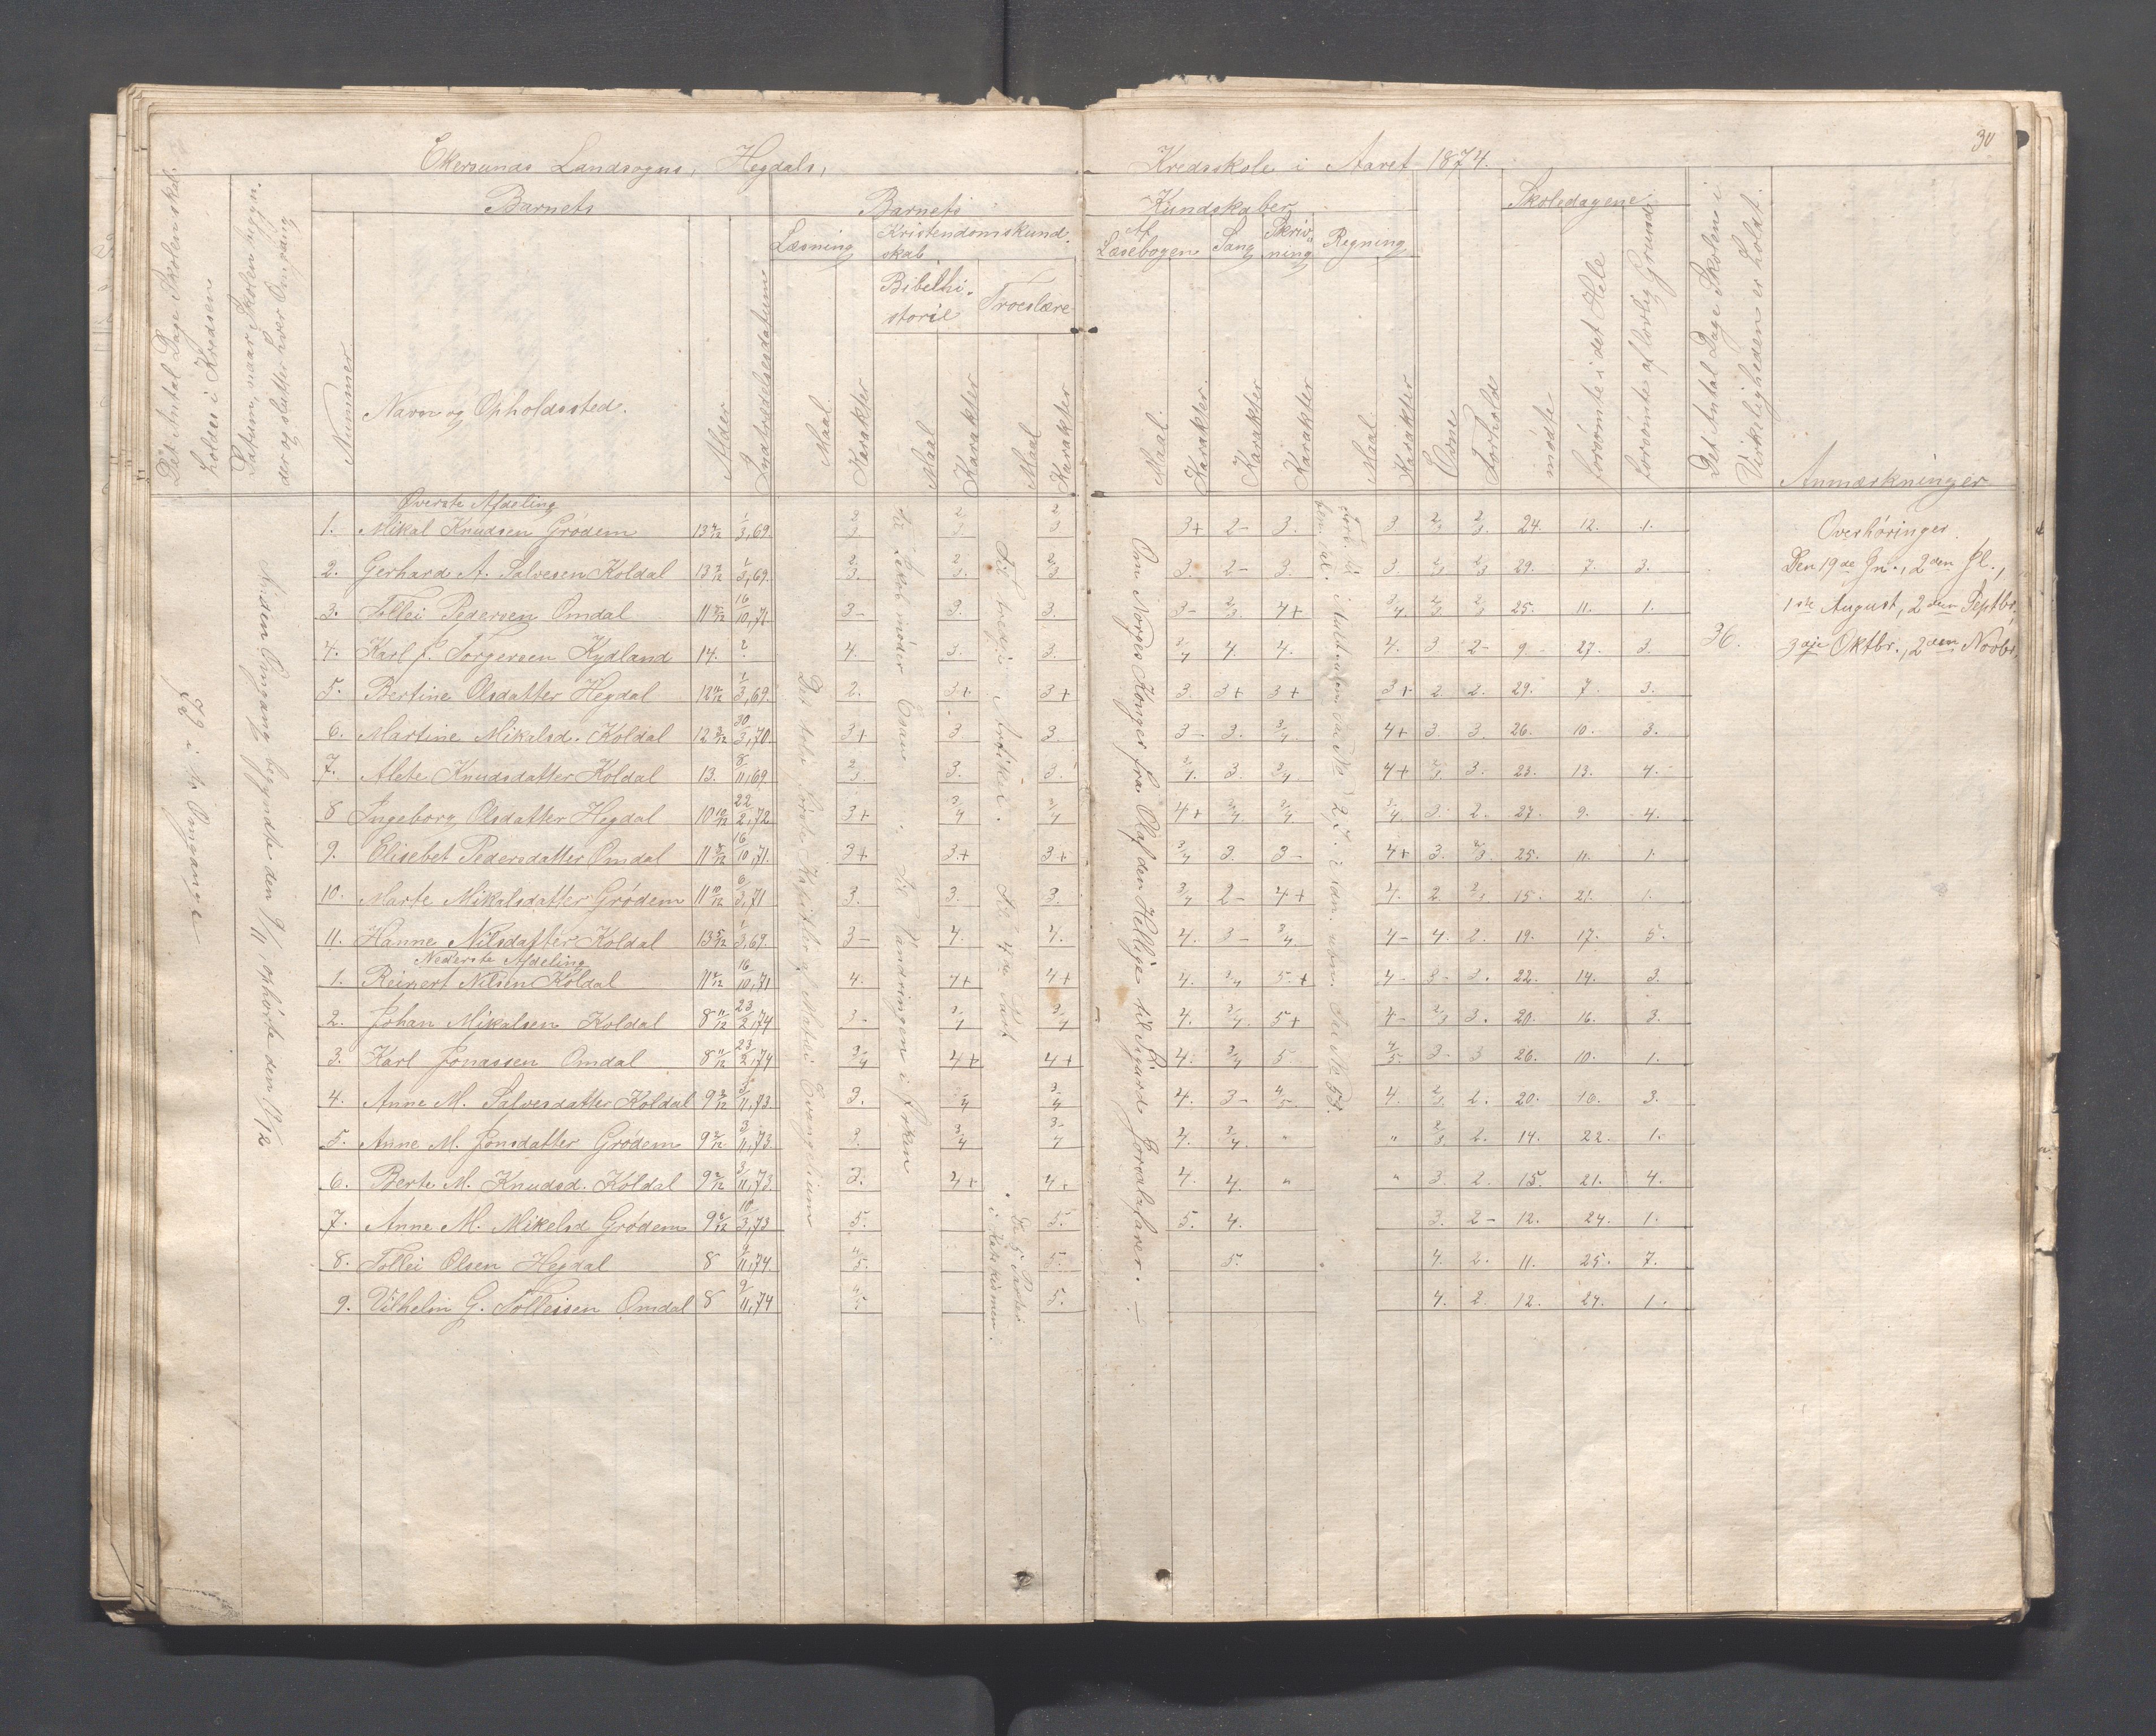 30
Ekersunds Landsogns, Hegdals, Kredsskole i Aaret 1874.
Det Antal Dage Skolen skal holdes i Kredsen
Datum, naar Skolen begynder og slutter hver Omgang
Barnets
Nummer
Navn og Opholdssted.
Alder
Indtrædelsesdatum
Barnets Kundskaber
Læsning
Kristendomskundskab
Bibelhistorie
Troeslære
Af Læsebogen
Sang
Skrivning
Regning
Maal
Karakter
Maal
Karakter
Maal
Karakter
Maal
Karakter
Karakter
Karakter
Maal
Karakter
Evne
Forhold
Skoledagene
mødte
forsømte i det Hele
forsømte af lovlig Grund
Det Antal Dage Skolen i Virkeligheden er holdt.
Anmærkninger
Øverste Afdeling
1. Mikal Knudsen Grødem 13 1/3,69. 3+ 2- 3. 3 2/3 2/3 24. 12. 1.
2. Gerhard A. Salvesen Koldal 13 1/3,69. 3. 2- 3. 3. 2/3 2/3 29. 7. 3.
3. Tollei Pedersen Omdal 11 16/10,71 3- 3. 3. 3- 2/3 4+ 3/4 2/3 2/3 25. 11. 1.
4. Karl J. Torgersen Kydland 14. ? 4. 3. 3. 3/4 4. 4. 4. 3. 2- 9 27. 3.
5. Bertine Olsdatter Hegdal 12 1/3,69. 2. 3+ 3+ 3. 3+ 3+ 3+ 2. 2. 29. 7. 3.
6. Martine Mikalsd. Koldal 12 30/3,70. 3+ 3 3. 3- 3. 3/4 4+ 3. 3. 26. 10. 3.
7. Alete Knudsdatter Koldal 13. 8/11,69 2/3 3. 3. 3/4 3. 3/4 4+ 2/3 3. 23. 13. 4.
8 Ingeborg Olsdatter Hegdal 10 10/12 22/2,72 3+ 3/4 3/4 4+ 3/4 3/4 3/4 3. 2. 27. 9. 4.
9. Elisebet Pedersdatter Omdal 11 16/10,71. 3+ 3+ 3+ 3/4 3. 3- 4+ 3. 2/3 25. 11. 1.
10. Marte Mikalsdatter Grødem 11 10/12 6/3,71 3. 3. 3. 3/4 2- 4+ 4. 2. 2/3 15. 21. 1.
11. Hanne Nilsdatter Koldal 13 1/3,69. 3- 4. 4. 4. 3- 3/4 4- 4. 2. 19. 17. 5.
Nederste Afdeling
1. Reinert Nilsen Koldal 11 16/10,71 4. 4+ 4+ 4. 3/4 5.+ 4- 3- 3. 22. 14. 3.
2. Johan Mikalsen Koldal 8 11/12 23/2,74 3- 3/4 3/4 4. 3/4 5+ 4- 2/3 3. 20. 16. 3.
3. Karl Jonassen Omdal 8 11/12 23/2,74 3/4 4+ 4+ 4. 3/4 5 4/5 3- 3 26. 10. 1.
4. Anne M. Salvesdatter Koldal 9 2/12 3/11,73. 3. 3/4 3/4 4. 3- 4/5 4. 2/3 2. 20. 16. 3.
5. Anne M. Jonsdatter Grødem 9 2/12 3/11,73 3. 3/4 3/4 4. 3/4 " " 2/3 2. 14. 22. 1.
6. Berte M. Knudsd. Koldal 9 2/12 3/11,73. 3. 4+ 4+ 4. 4. " " 3. 2. 15. 21. 4.
7. Anne M. Mikelsd Grødem 9 10/3,73 5. 5. 5. 4. 3. 2- 12. 24. 1.
8. Tollei Olsen Hegdal 8 9/11,74. 4/5 5. 5. 4. 2. 11. 25. 7.
9. Vilhelm G. Tolleisen Omdal 8 9/11,74 4/5 5. 4. 2. 12. 24. 1.
Anden Omgang begyndte den 9/11, ophørte den
Det hele første Kapitel af Matæi Evangelium
Til Jakob møder Esau. Til Vandringen i Ørken
Til tredie Artikel. Til 4de Part
De 5 Parter i Katekismen.
Om Norges Konger fra Olaf den Hellige til Sigurd Jorsalafarer.
36.
Overhøringer.
Den 19de Jn., 2den Jl.,
1ste August, 2den Septbr,
3die Oktbr., 2den Novbr.